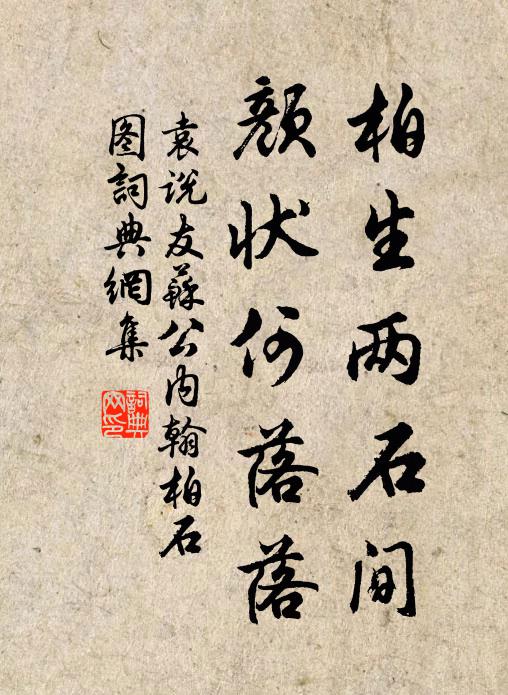 柏生两石间
颜状何落落
袁说友蘇公内翰柏石
图詞典網集
詞典网印